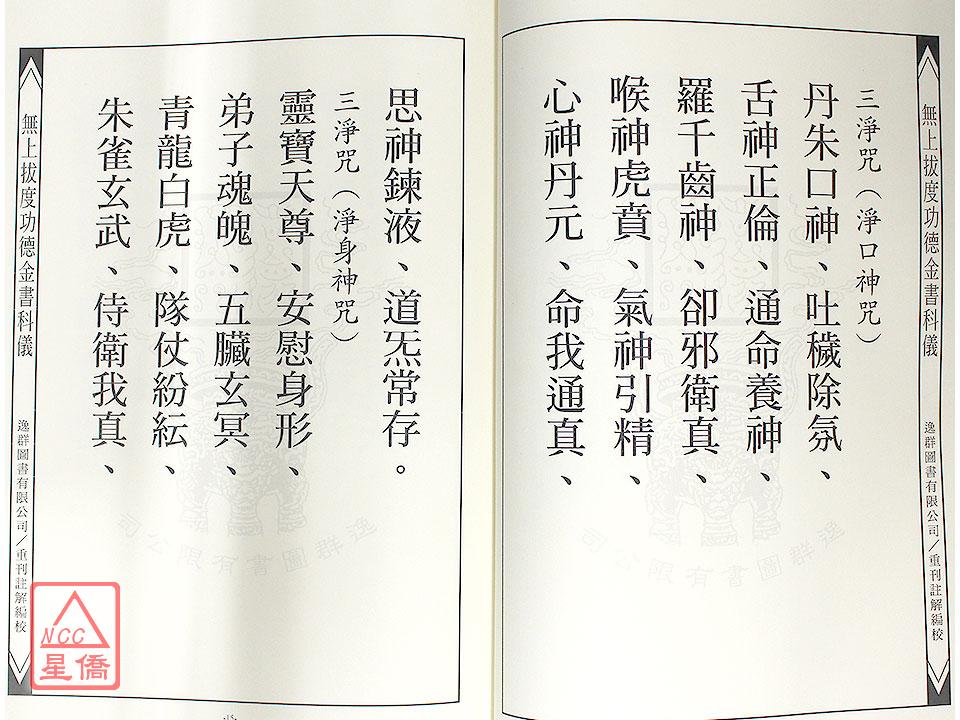 無上拔度功德金書科儀
逸群圖書有限公司／重刊註解編校
三淨咒（淨口神咒）
丹朱口神、吐穢除氛、
舌神正倫、通命養神、
羅千齒神、卻邪衛真、
喉神虎賁、氣神引精、
心神丹元、命我通真、
逸群圖書有限公司
思神鍊液、道炁常存。
三淨咒（淨身神咒）
靈寶天尊、安慰身形、
弟子魂魄、五臟玄冥、
青龍白虎、隊仗紛紜、
朱雀玄武、侍衛我真、
逸群圖書有限公司
無上拔度功德金書科儀
逸群圖書有限公司／重刊註解編校
NCC
星僑
·15·